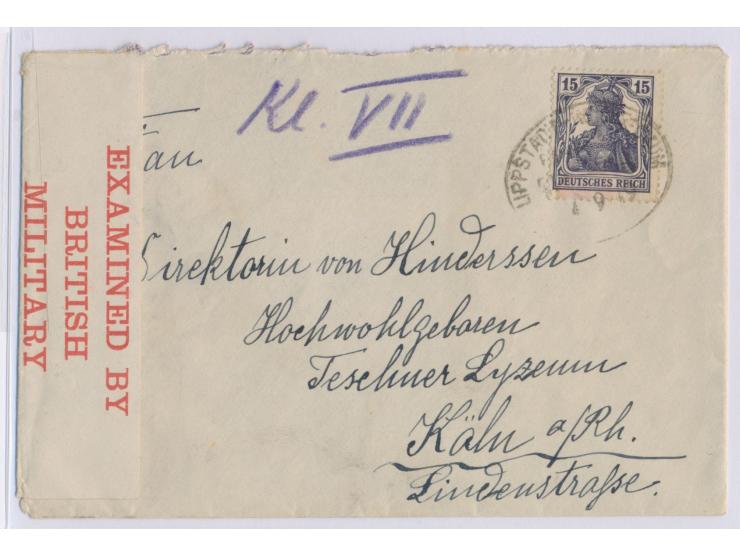 Kl. VII
15 15
DEUTSCHES REICH
EXAMINED BY
BRITISH
MILITARY
rau
Direktorin von Hinderssen
Hochwohlgeboren
Teschner Lyzeum
Köln a/Rh.
Lindenstraße.